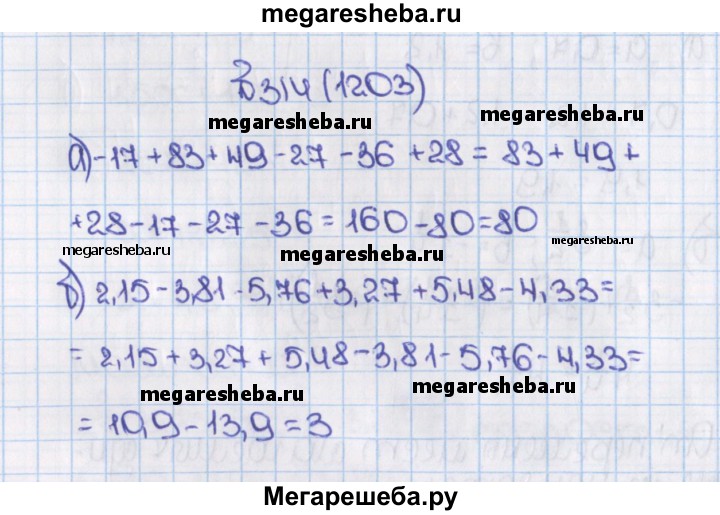 megaresheba.ru
В 314 (1203)
megaresheba.ru
megaresheba.ru
а) -17 + 83 + 49 - 27 - 36 + 28 = 83 + 49 +
+ 28 - 17 - 27 - 36 = 160 - 80 = 80
megaresheba.ru
megaresheba.ru
megaresheba.ru
б) 2,15 - 3,81 - 5,76 + 3,27 + 5,48 - 4,33 =
= 2,15 + 3,27 + 5,48 - 3,81 - 5,76 - 4,33 =
megaresheba.ru
megaresheba.ru
= 10,9 - 13,9 = 3
Мегарешеба.ру